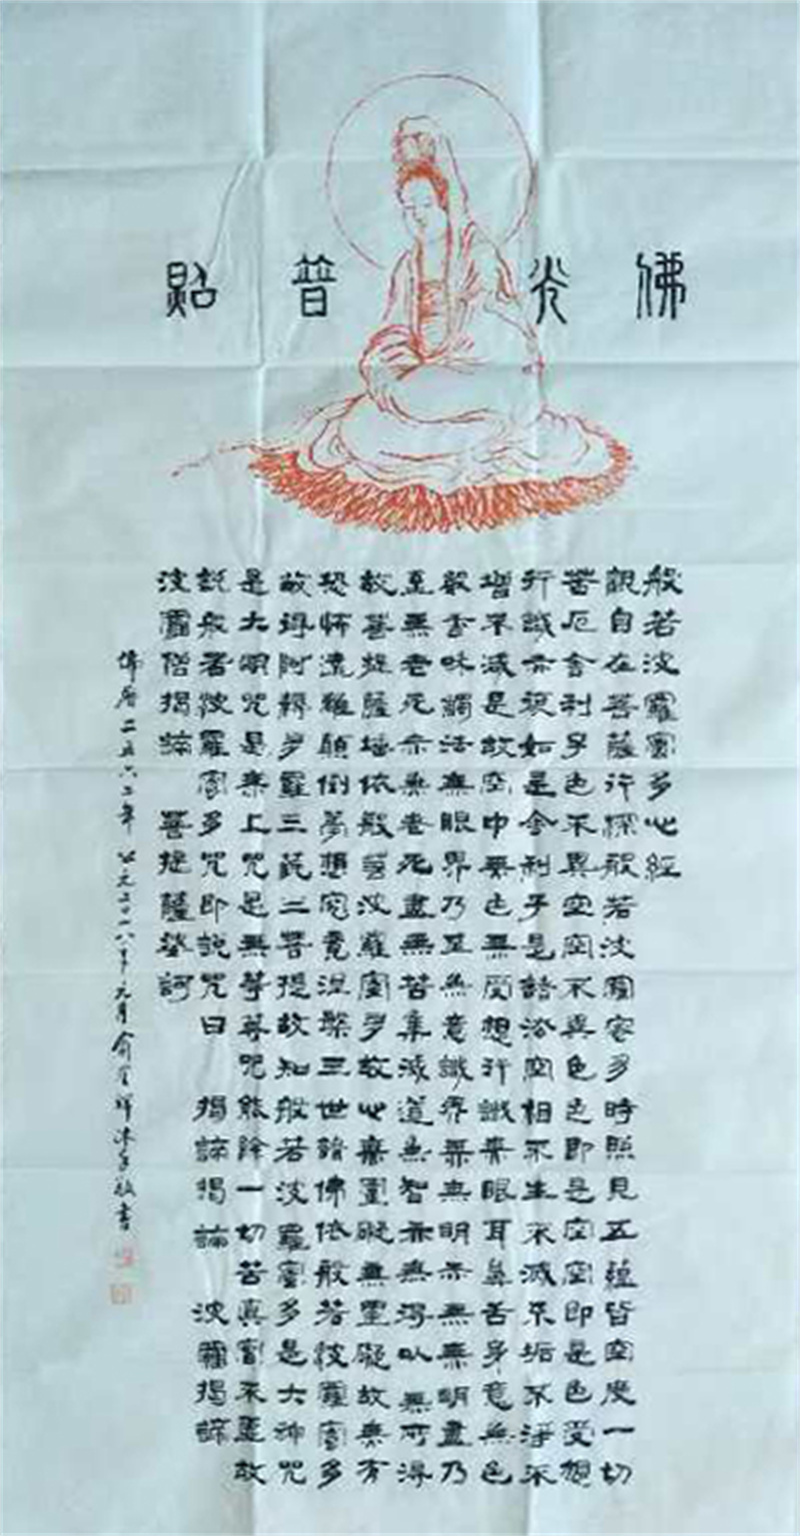 佛光普照
般若波羅蜜多心經
觀自在菩薩行深般若波羅密多時照見五蘊皆空度一切
苦厄舍利子色不異空空不異色色即是空空即是色受想
行識亦復如是舍利子是諸法空相不生不滅不垢不淨不
增不減是故空中無色無受想行識無眼耳鼻舌身意無色
聲香味觸法無眼界乃至無意識界無無明亦無無明盡乃
至無老死亦無老死盡無苦集滅道無智亦無得以無所得
故菩提薩埵依般若波羅蜜多故心無罣礙無罣礙故無有
恐怖遠離顛倒夢想究竟涅槃三世諸佛依般若波羅蜜多
故得阿耨多羅三藐三菩提故知般若波羅蜜多是大神咒
是大明咒是無上咒是無等等咒能除一切苦真實不虛故
說般若波羅蜜多咒即說咒曰 揭諦揭諦 波羅揭諦
波羅僧揭諦 菩提薩婆訶
佛曆二五六二年 公元二〇一八年元月俞輝沐手敬書